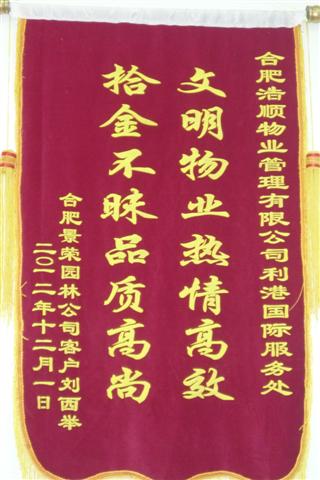 合肥浩顺物业管理有限公司利港国际服务处
文明物业热情高效
拾金不昧品质高尚
合肥景荣园林公司客户刘西举
二〇一二年十二月一日